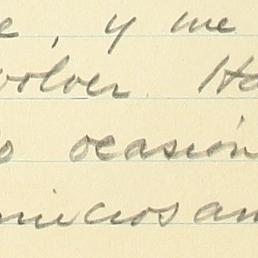 e, y me
volver. Ha
o ocasión
micros am